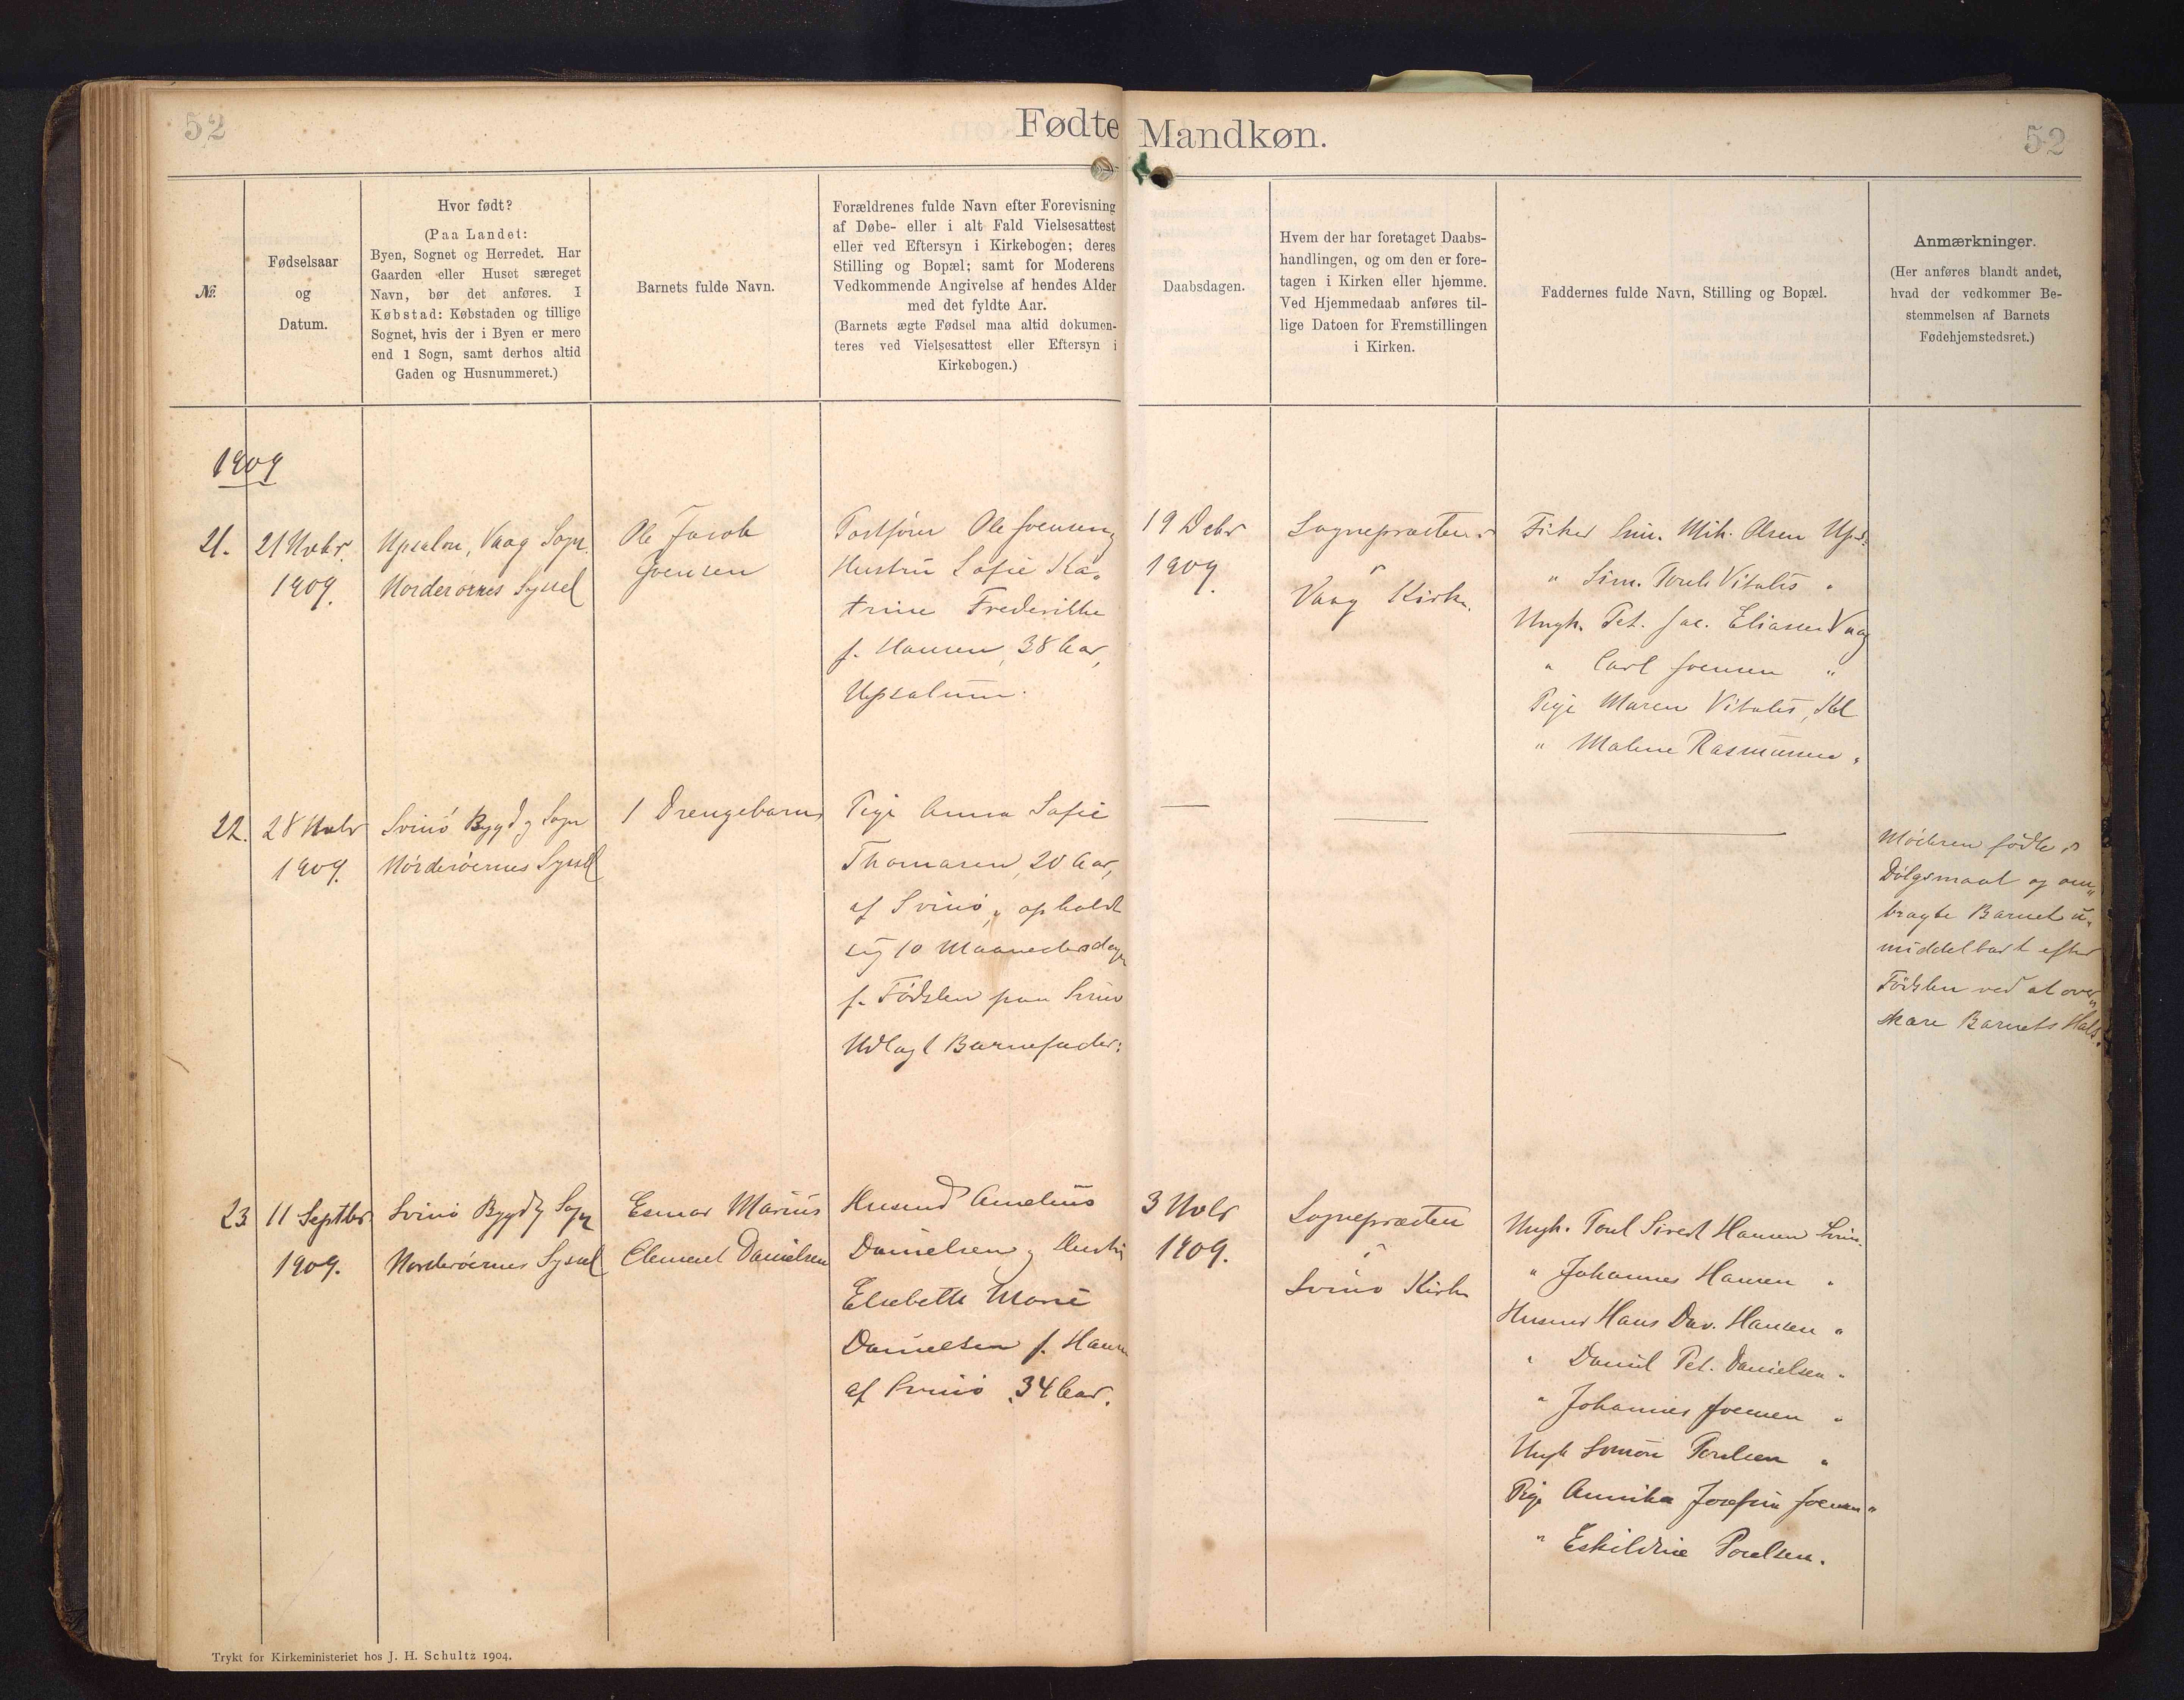 52
Fødte Mandkøn.
52
№.
Fødselsaar
og
Datum.
Hvor født?
(Paa Landet:
Byen, Sognet og Herredet. Har
Gaarden eller Huset særeget
Navn, bør det anføres. I
Købstad: Købstaden og tillige
Sognet, hvis der i Byen er mere
end 1 Sogn, samt derhos altid
Gaden og Husnummeret.)
Barnets fulde Navn.
Forældrenes fulde Navn efter Forevisning
af Døbe- eller i alt Fald Vielsesattest
eller ved Eftersyn i Kirkebogen; deres
Stilling og Bopæl; samt for Moderens
Vedkommende Angivelse af hendes Alder
med det fyldte Aar.
(Barnets ægte Fødsel maa altid dokumen-
teres ved Vielsesattest eller Eftersyn i
Kirkebogen.)
Daabsdagen.
Hvem der har foretaget Daabs-
handlingen, og om den er fore-
tagen i Kirken eller hjemme.
Ved Hjemmedaab anføres til-
lige Datoen for Fremstillingen
i Kirken.
Faddernes fulde Navn, Stilling og Bopæl.
Anmærkninger.
(Her anføres blandt andet,
hvad der vedkommer Be-
stemmelsen af Barnets
Fødehjemstedsret.)
1909
21.
21 Novbr.
1909.
Upsalon, Vaag Sogn.
Norderøernes Syssel
Ole Jacob
Joensen
Postfører Ole Joensen og
Hustru Sofie Ka-
trine Frederikke
f. Hansen, 38 Aar,
Upsalum.
19 Debr
1909.
Sognepræsten
Vaag Kirke.
Fisker Mik. Olsen Ups.
" Sim. Poul Vitalis "
Ungk. Pet. Jac. Eliasen Vaag
" Carl Joensen "
Pige Maren Vitalis,
" Malene Rasmussen "
22.
28 Novbr
1909.
Svinö Bygd og Sogn
Norderöernes Syssel
1 Drengebarn
Pige Anna Sofie
Thomasen, 20 Aar,
af Svinö, opholdt
sig 10 Maanedersdagen
f. Födslen paa Svinö
Udlagt Barnefader:
Moderen födte i
Dölgsmaal og om-
bragte Barnet u-
middelbart efter
Födslen ved at over-
skære Barnets Hals.
23
11 Septbr
1909.
Svinö Bygd og Sogn
Norderöernes Syssel
Esmar Marius
Clement Danielsen
Husmd Amelius
Danielsen og Hustru
Elsebeth Marie
Danielsen f. Hansen
af Svinö, 34 Aar.
3 Novbr
1909.
Sognepræsten
Svinö Kirke
Ungk. Poul Sivert Hansen Svinö.
" Johannes Hansen "
Husmd Hans Dav. Hansen "
" Daniel Pet. Danielsen "
" Johannes Joensen "
Ungk Simon Poulsen "
Pige Annika Josefine Joensen "
" Eskildine Poulsen.
Trykt for Kirkeministeriet hos J. H. Schultz 1904.